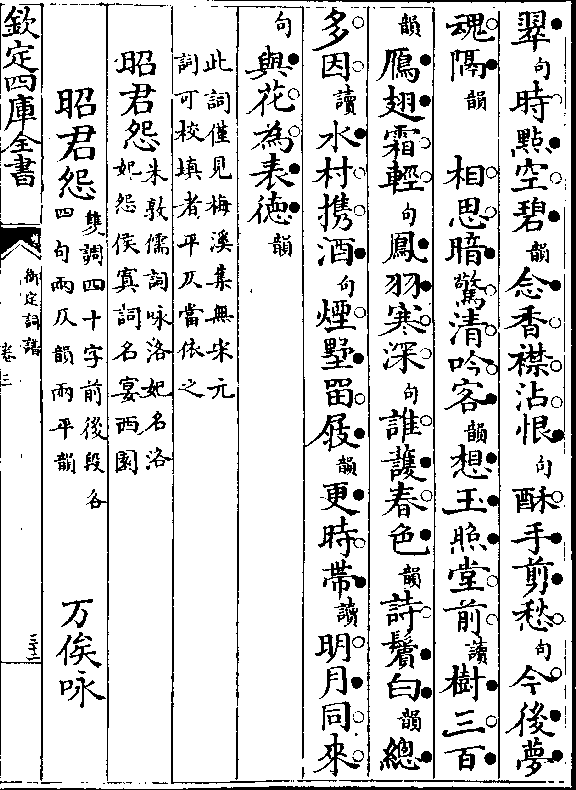 翠句時點空碧韻念香襟沾恨句酥手剪愁句今後夢
魂隔韻 相思暗驚清吟客韻想玉照堂前讀樹三百
韻鴈翅霜輕句鳳羽寒深句誰護春色韻詩鬢白韻總
多因讀水村携酒句煙墅留屐韻更時帶讀明月同來
句與花為表德韻
此詞僅見梅溪集無宋元
詞可校填者平仄當依之
昭君怨朱敦儒詞咏洛妃名洛
妃怨侯寘詞名宴西園
昭君怨雙調四十字前後段各
四句兩仄韻兩平韻 万俟咏
欽定四庫全書
御定詞譜
卷三
三十二